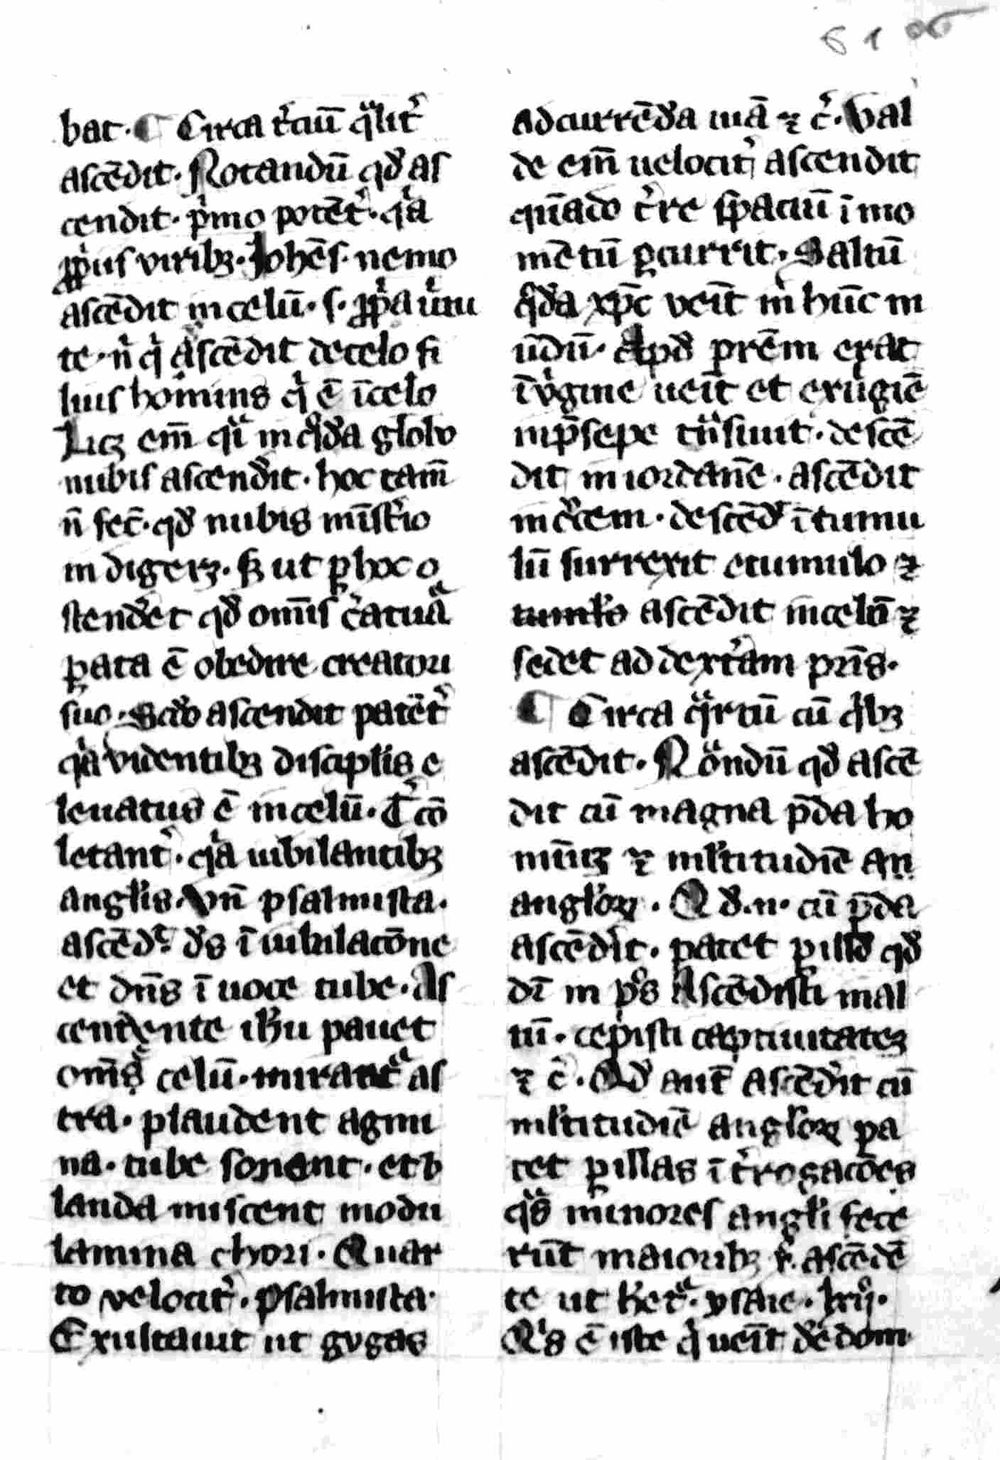 61
bat. ¶ Circa t̾ciū q̄lit̾
ascēdit. Notandū qd̾ as
cendit. p̾mo potēt̾. q̾a
ꝓp̾us viribꝫ. Johēs. nemo
ascēdit in celū. s. ꝓp̾a u̾tu
te. n̾ q̾ d̾scēdit de celo fi
lius hominis q̾ ē ī celo
Licꝫ em̄ qͣ in q̾da globo
nubis ascend̾it. hoc tam̄
n̄ fec̄. qd̾ nubis mīst̾io
indigerꝫ. sꝫ ut ꝑ hoc o
stend̾et qd̾ om̄is c̾atuͣ
ꝑata ē obedire creatori
suo. Scd̾o ascendit patēt̾
q̾a videntibꝫ discip̄lis e
leuatus ē in celū. T̾ cō
letant̾. q̾a iubilantibꝫ
angl̾is. Vn̄ psalmista.
ascēd̾ d̾s ī iubilacōne
et dn̄s ī uoce tube. As
cendente ih̾u pauet
om̄e celū. mirantͣ as
tra. plaudent agmi
na. tube sonant. et b
landa miscent modu
lamina chori. Quar
to velocit̾. psalmista.
Exultauit ut gygas
ad currēd̾a uiā ⁊ c̾. Val
de em̄ uelocit̾ ascendit
qn̄ado t̾re spaciū ī mo
mētū ꝑcurrit. Saltū
q̾da xp̄c veīt in hūc m
ūdū. Apd̾ prēm erat
ī v̾gine ueīt et ex ūgīē
in p̄sepe tn̄siuit. descē
dit in iordanē. ascēdit
in c̾cem. descēd̾ ī tumu
lū surrexit e tumulo ⁊
tumlo ascēdit in celū ⁊
sedet ad dext̾am pris̄.
¶ Circa qͣrtū cū q̾bꝫ
ascēdit. Nōndū qd̾ ascē
dit cū magna p̄da ho
minū ⁊ ml̾titudīe an
angl̾oꝝ. Qd̾. n. cū p̄da
ascēd̾it. patet ꝑ illd̾ qd̾
dī in p̾s Ascēdisti in al
tū. cepisti captiuitateꝫ
⁊ c̾. Qd̾ aut̄ ascēd̾it cū
ml̾titudīe angl̾oꝝ pa
tet ꝑ illas īt̾rogacōes
qͣs minores angl̾i fece
rūt maioribꝫ x̾. ascēdē
te ut h̾etͣ. ysaie. lxij.
Q̾s ē iste q̾ ueīt de edom